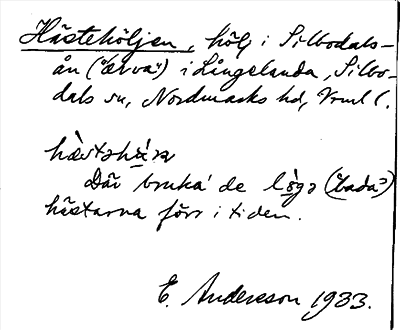 Hästehöljen, hölj i Silbodals-
ån ("älva") i Långelanda, Silbo-
dals sn, Nordmarks hd, Vrml l.
Där bruka' de lö̀gə (bada²)
hästarna förr i tiden.
E. Andersson 1933.